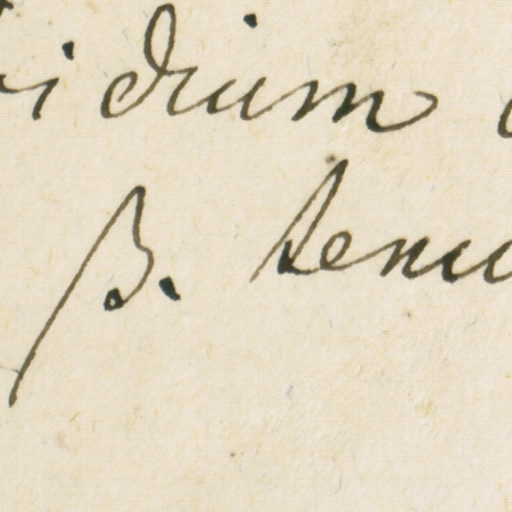 idium
β. tenu